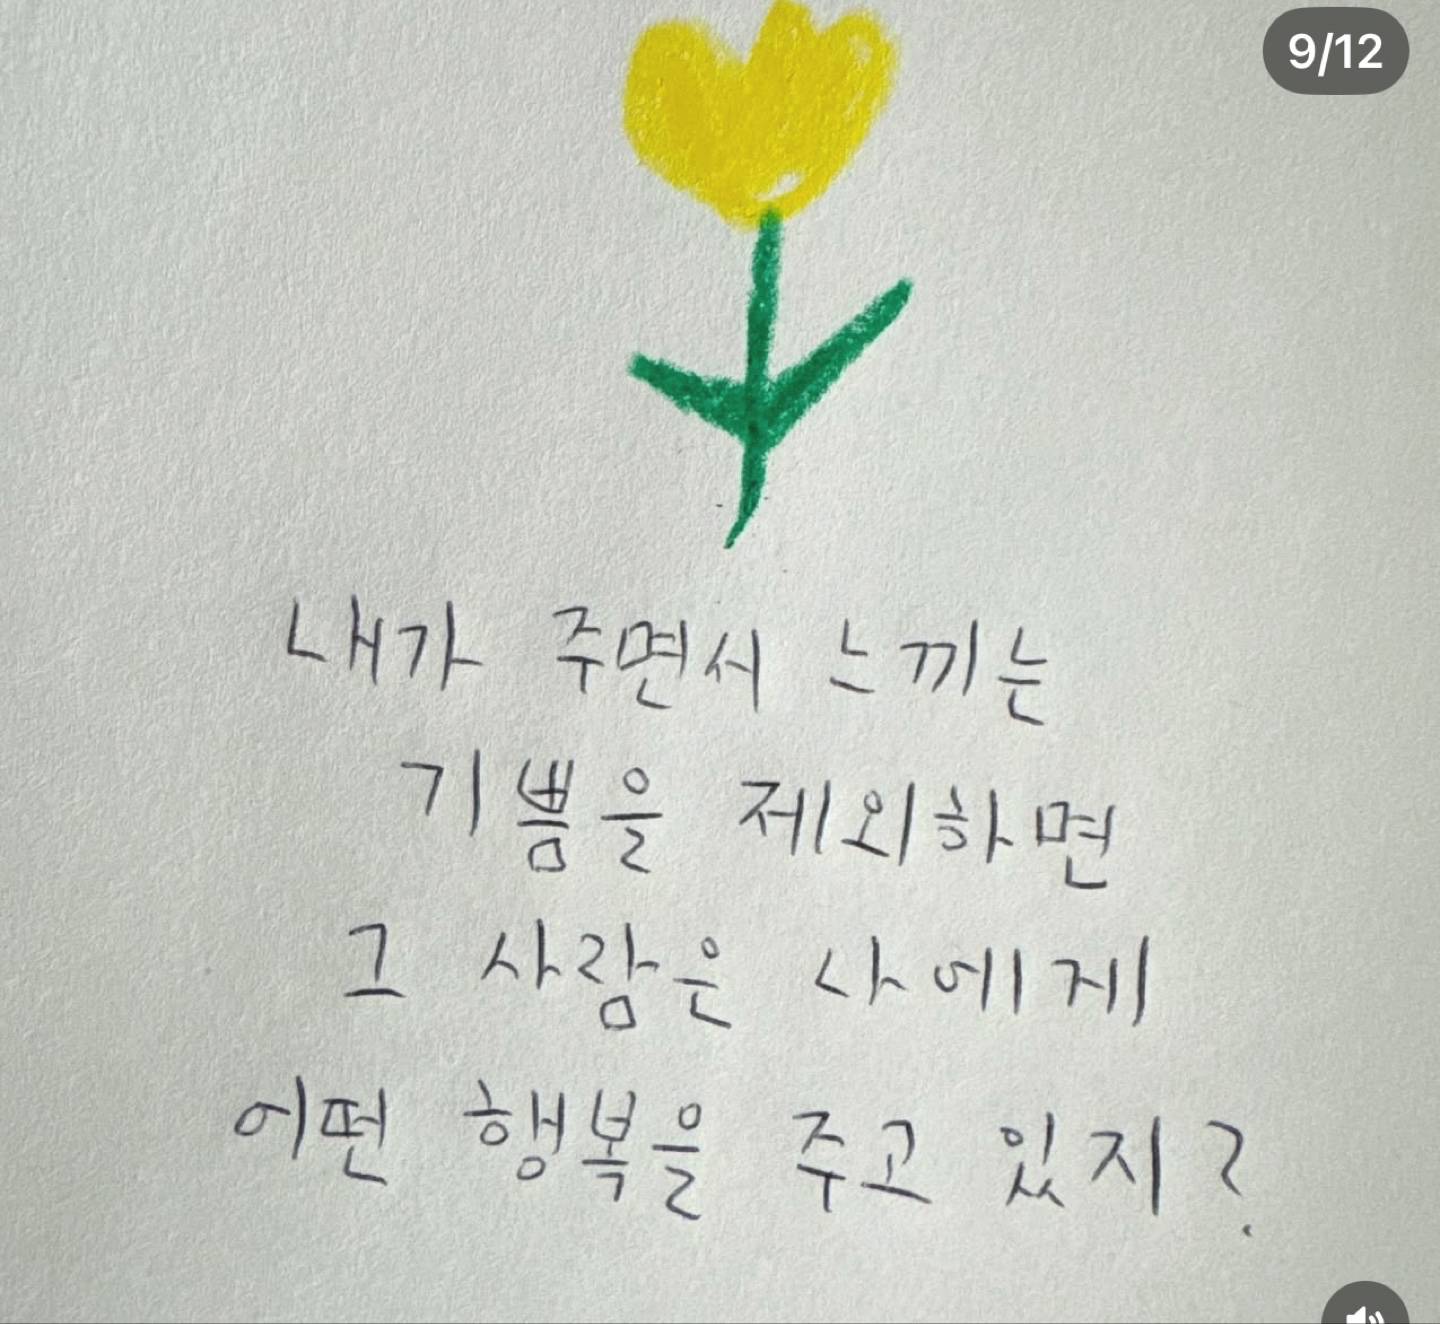 9/12
내가 주면서 느끼는
기쁨을 제외하면
그 사람은 나에게
어떤 행복을 주고 있지?